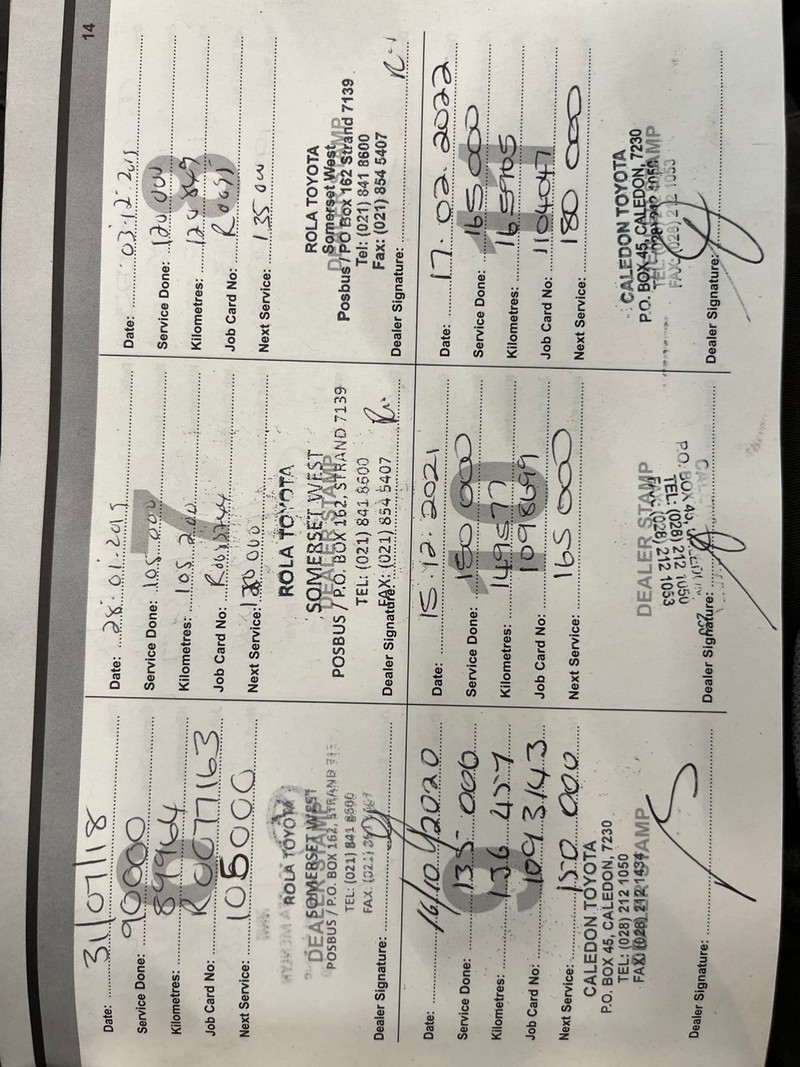 14
Date: 31/07/18
Service Done: 90000
Kilometres: 89964
Job Card No: R0077163
Next Service: 105000
ROLA TOYOTA
SOMERSET WEST
DEALER STAMP
POSBUS / P.O. BOX 162, STRAND
TEL: (021) 841 8600
FAX: (021)
Dealer Signature:
Date: 28.01.2019
Service Done: 105 000
Kilometres: 105 200
Job Card No:
Next Service: 120 000
7
ROLA TOYOTA
SOMERSET WEST
DEALER STAMP
POSBUS / P.O. BOX 162, STRAND 7139
TEL: (021) 841 8600
FAX: (021) 854 5407
Dealer Signature:
Date: 03.12.2019
Service Done: 120 000
Kilometres: 120 849
Job Card No:
Next Service: 135 000
8
ROLA TOYOTA
Somerset West
DEALER STAMP
Posbus / PO Box 162 Strand 7139
Tel: (021) 841 8600
Fax: (021) 854 5407
Dealer Signature:
Date: 16/10/2020
Service Done: 135 000
Kilometres: 136 457
Job Card No: 1093143
Next Service: 150 000
9
CALEDON TOYOTA
P.O. BOX 45, CALEDON, 7230
TEL: (028) 212 1050
FAX: (028) 212 1434
DEALER STAMP
Dealer Signature:
Date: 15.12.2021
Service Done: 150 000
Kilometres: 149577
Job Card No: 1098699
Next Service: 165 000
10
DEALER STAMP
P.O. BOX 45,
TEL: (028) 212 1050
FAX: (028) 212 1053
Dealer Signature:
Date: 17.02.2022
Service Done: 165 000
Kilometres: 165965
Job Card No: 1104047
Next Service: 180 000
11
CALEDON TOYOTA
P.O. BOX 45, CALEDON, 7230
DEALER STAMP
TEL: (028) 212 1050
FAX: (028) 212 1053
Dealer Signature: